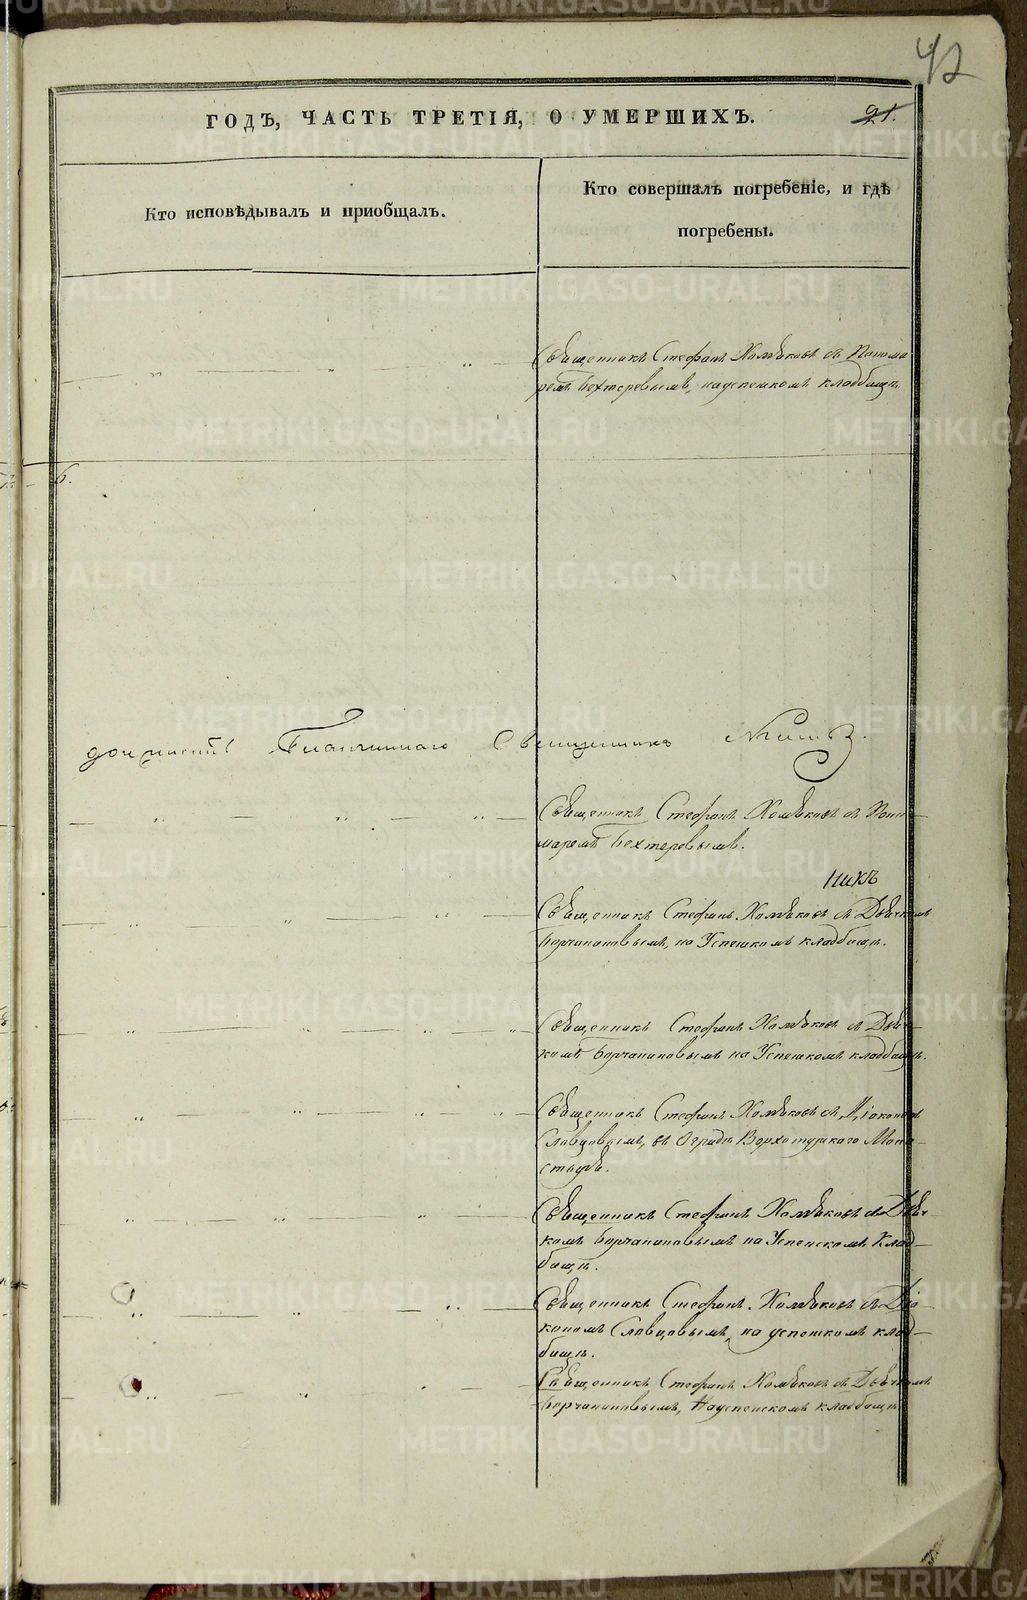 42
ГОДЪ, ЧАСТЬ ТРЕТІЯ, О УМЕРШИХЪ.
21.
Кто исповѣдывалъ и приобщалъ.
Кто совершалъ погребеніе, и гдѣ
погребены.
Священникъ Стефанъ Хомяковъ съ Понома
ремъ Бехтеревымъ, на успенкомъ кладбищѣ
6.
Священникъ
Священникъ Стефанъ Хомяковъ съ Поно
маремъ Бехтеревымъ.
никъ
Священникъ Стефанъ Хомяковъ съ Дьячкомъ
на Успенкомъ кладбищѣ.
Священникъ Стефанъ Хомяковъ съ Дьяч
комъ на Успенкомъ кладбищѣ.
Священникъ Стефанъ Хомяковъ съ Діакономъ
Словцовымъ, въ Оградѣ Верхотурского Мона
стыря.
Священникъ Стефанъ Хомяковъ съ Дьяч
комъ на Успенскомъ Клад
бищѣ.
Священникъ Стефанъ Хомяковъ съ Діа
кономъ Словцовымъ, на успенкомъ клад
бищѣ.
Священникъ Стефанъ Хомяковъ съ Дьячкомъ
На успенскомъ кладбищѣ
METRIKI.GASO-URAL.RU